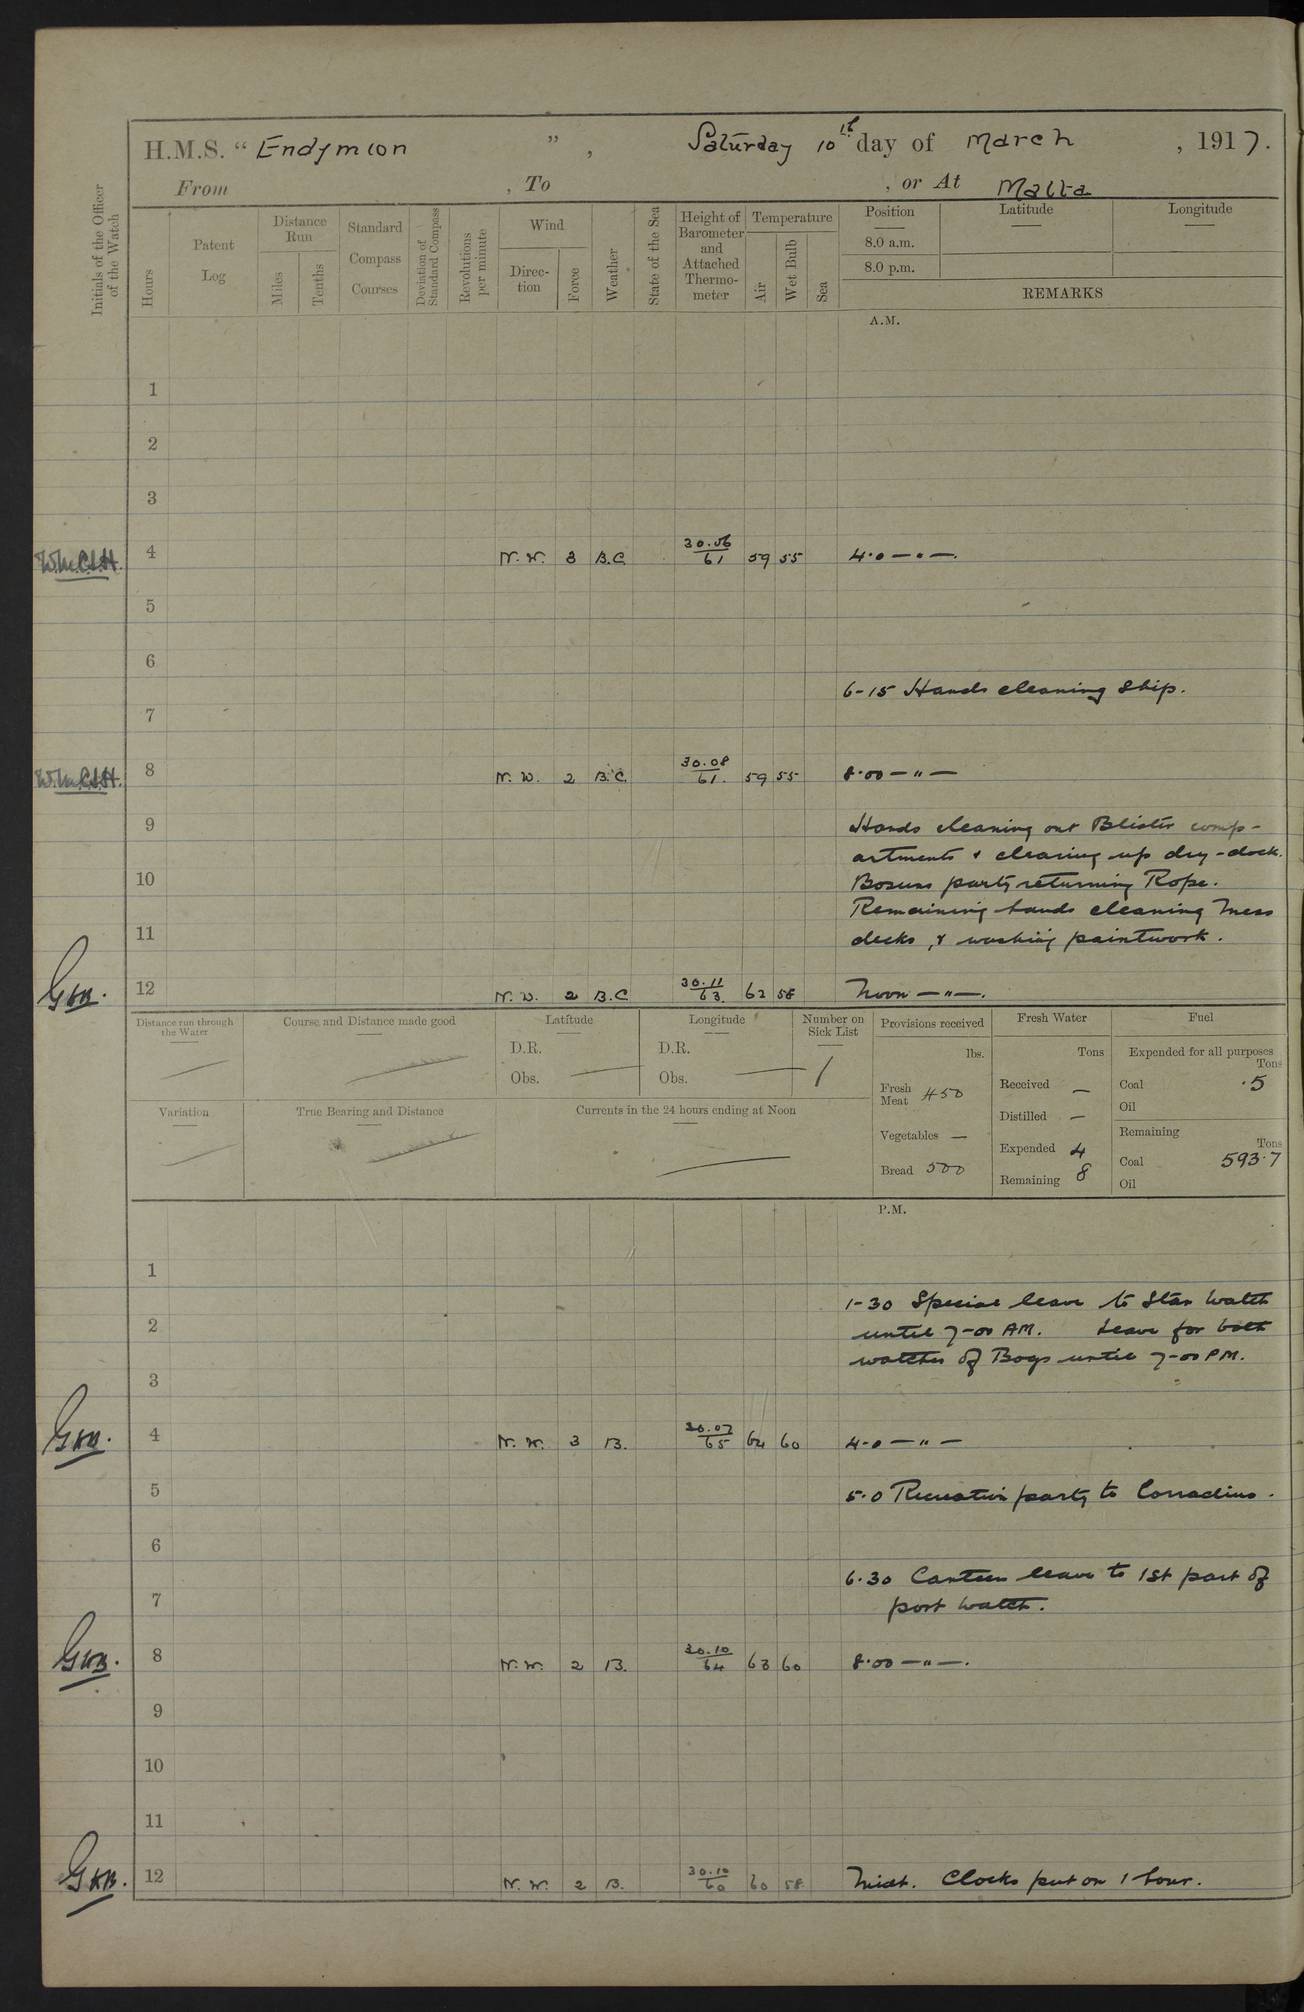 H.M.S. “ Endymion ”, Saturday 10th day of March , 1917.
From , To , or At Malta
Initials of the Officer of the Watch
Hours
Patent Log
Distance Run
Miles
Tenths
Standard Compass Courses
Deviation of Standard Compass
Revolutions per minute
Wind
Direction
Force
Weather
State of the Sea
Height of Barometer and Attached Thermometer
Temperature
Air
Wet Bulb
Sea
Position
8.0 a.m.
8.0 p.m.
Latitude
Longitude
REMARKS
A.M.
1
2
3
4 N.W. 3 B.C. 30.06 61 59 55 4.0 — " —.
5
6
6-15 Hands cleaning ship.
7
8 N.W. 2 B.C. 30.08 61. 59 55 8.00 — " —
9 Hands cleaning out Blister comp-
artments & clearing up dry-dock.
10 Bosuns party returning Rope.
Remaining hands cleaning mess
11 decks, & washing paintwork.
12 N.W. 2 B.C 30.11 63. 62 58 Noon — " —.
Distance run through the Water
Course and Distance made good
Latitude
D.R.
Obs.
Longitude
D.R.
Obs.
Number on Sick List
1
Variation
True Bearing and Distance
Currents in the 24 hours ending at Noon
Provisions received
lbs.
Fresh Meat 450
Vegetables —
Bread 500
Fresh Water
Tons
Received —
Distilled —
Expended 4
Remaining 8
Fuel
Expended for all purposes
Tons
Coal .5
Oil
Remaining
Tons
Coal 593.7
Oil
P.M.
1
1-30 Special leave to Star Watch
2 until 7-00 AM. Leave for both
watches of Boys until 7-00 PM.
3
4 N.W. 3 B. 30.07 65 64 60 4-0 — " —
5 5.0 Recreation party to Corradino.
6
6.30 Canteen leave to 1st part of
7 port watch.
8 N.W. 2 B. 30.10 64 63 60 8.00 — " —.
9
10
11
12 N.W. 2 B. 30.10 60 60 58 Midt. Clocks put on 1 hour.